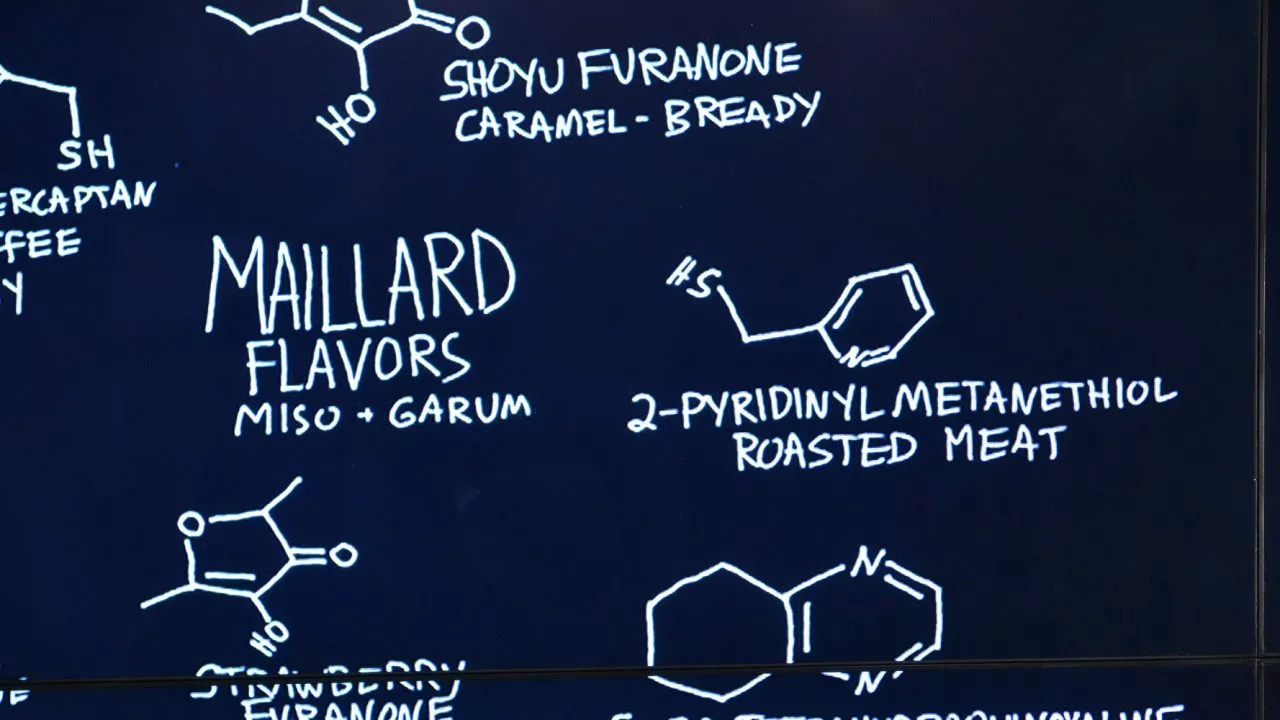 O
HO
SHOYU FURANONE
CARAMEL - BREADY
SH
ERCAPTAN
FFEE
Y
MAILLARD
FLAVORS
MISO + GARUM
HS
N
2-PYRIDINYL METANETHIOL
ROASTED MEAT
O
O
HO
STRAWBERRY
FURANONE
N
N